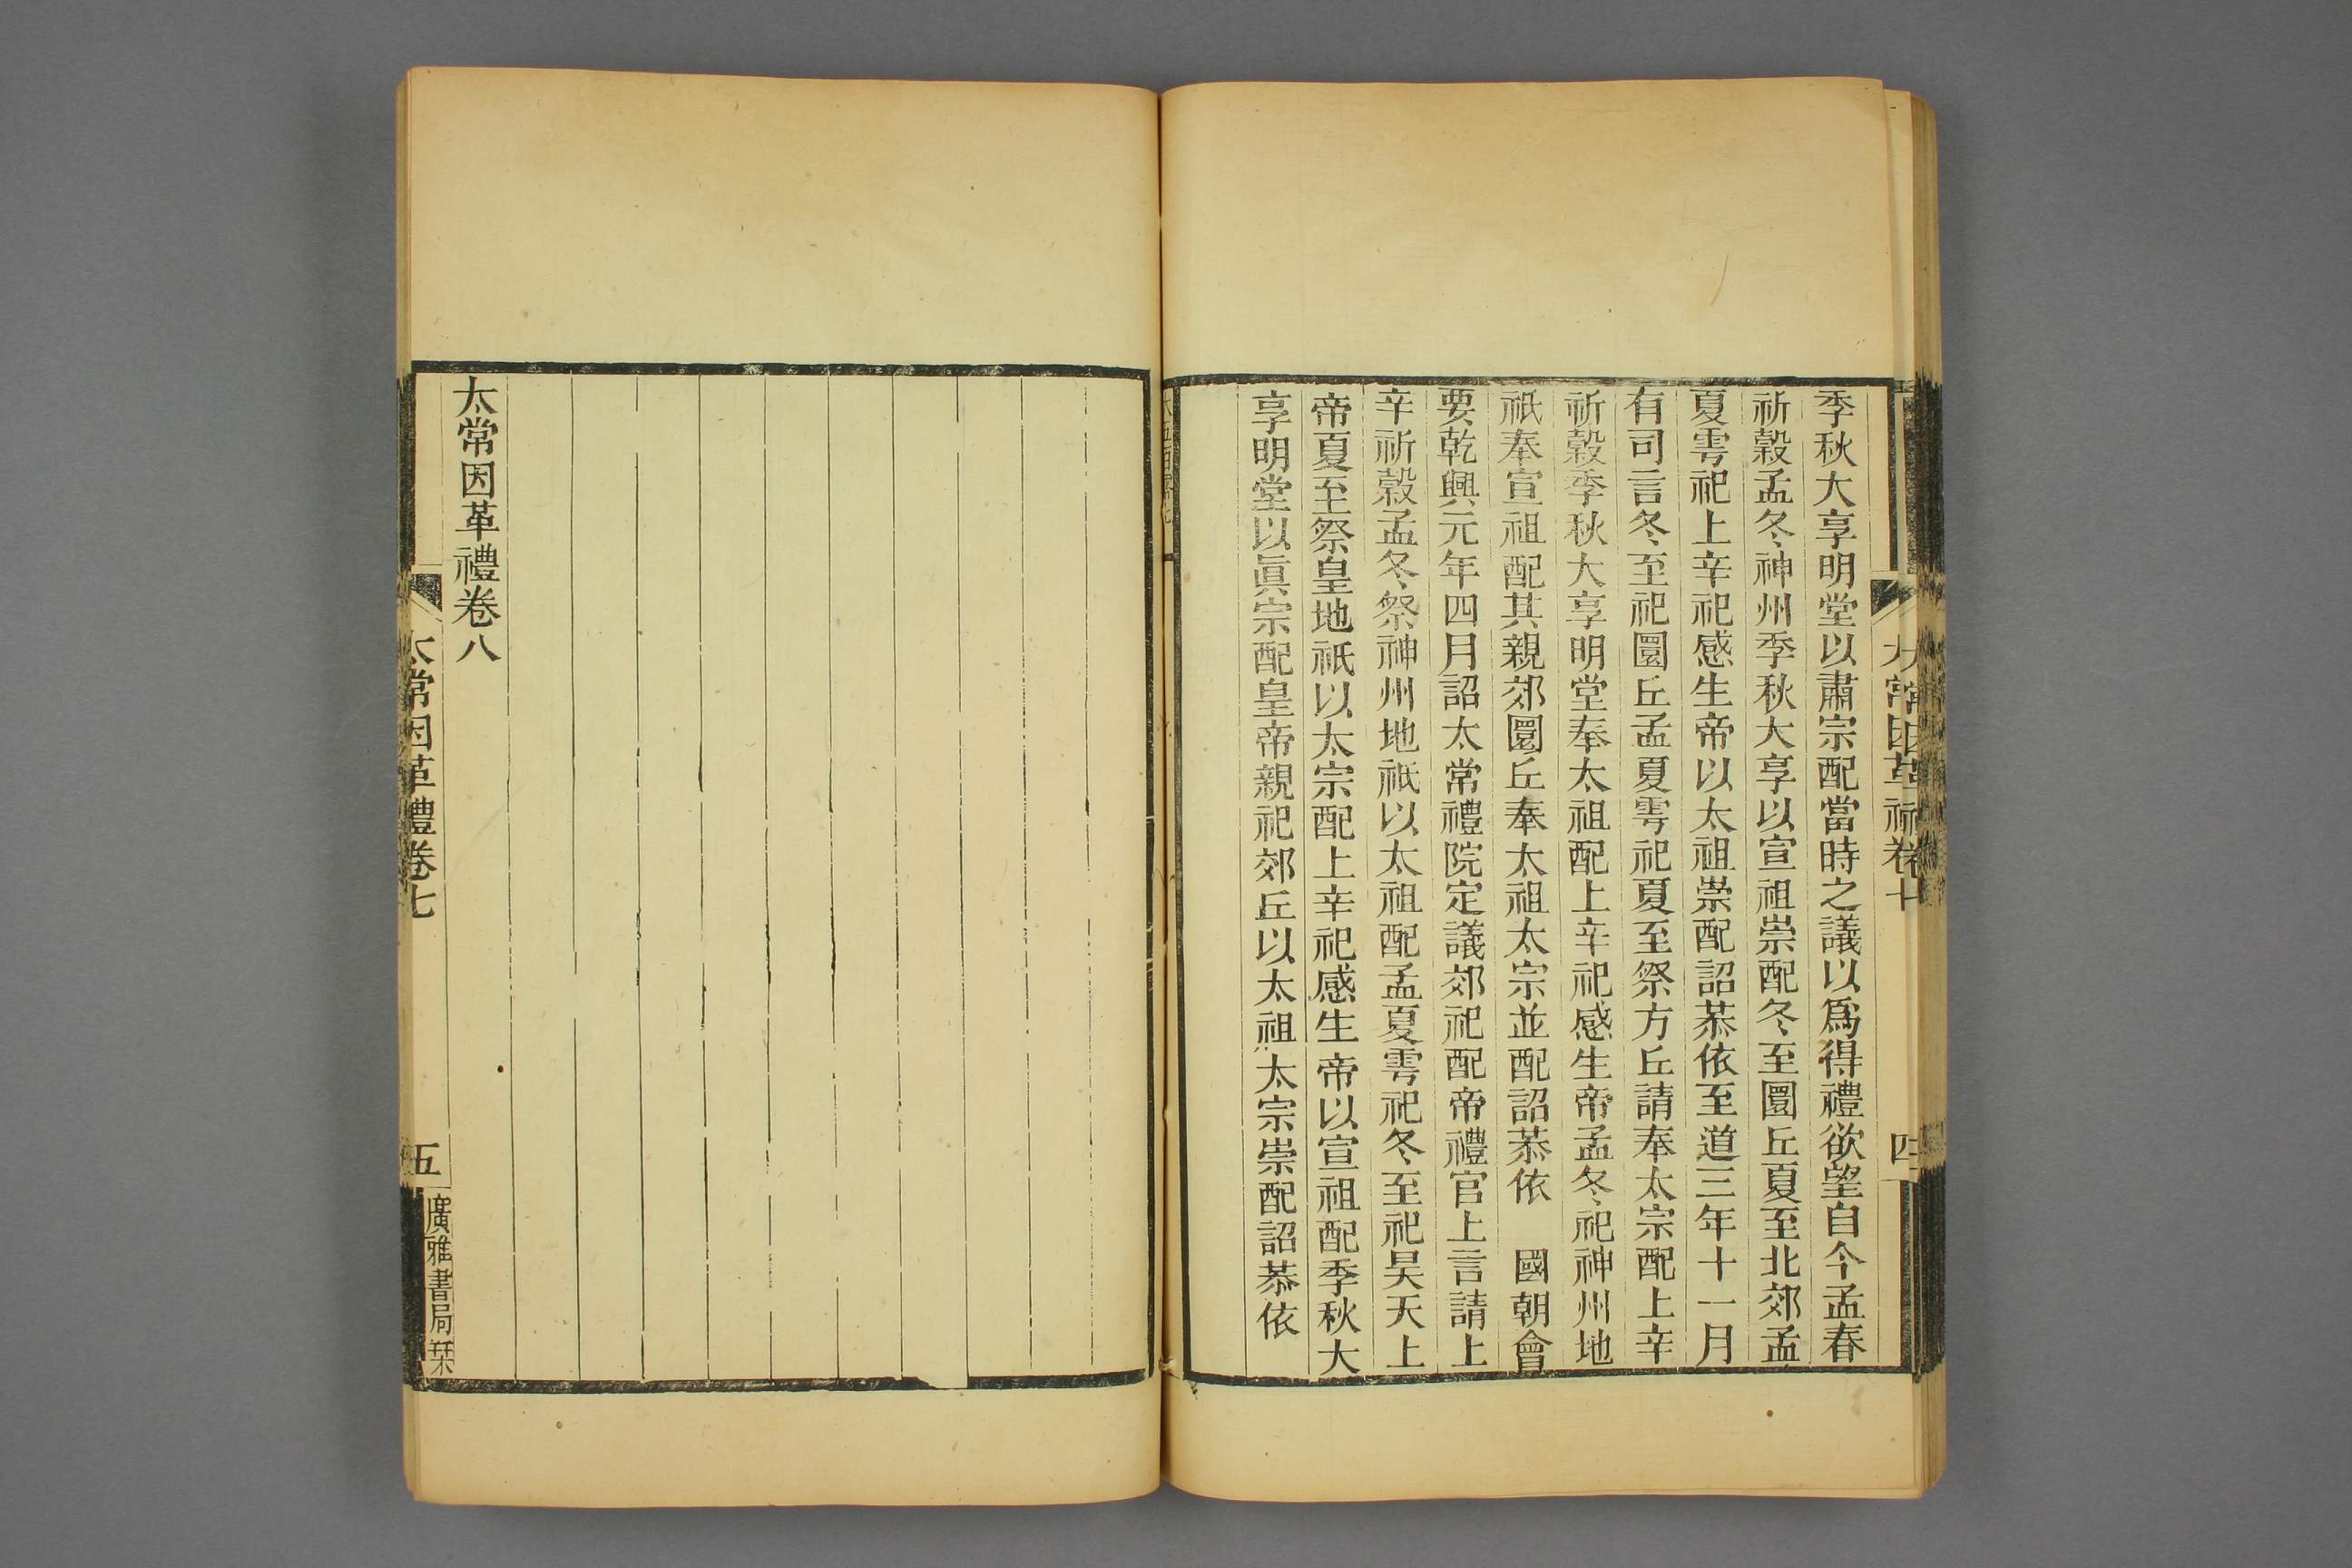 太常因革禮卷七
四
季秋大享明堂以肅宗配當時之議以爲得禮欲望自今孟春
祈穀孟冬神州季秋大享以宣祖崇配冬至圜丘夏至北郊孟
夏雩祀上辛祀感生帝以太祖崇配詔恭依至道三年十一月
有司言冬至祀圜丘孟夏雩祀夏至祭方丘請奉太宗配上辛
祈穀季秋大享明堂奉太祖配上辛祀感生帝孟冬祀神州地
祇奉宣祖配其親郊圜丘奉太祖太宗並配詔恭依　國朝會
要乾興元年四月詔太常禮院定議郊祀配帝禮官上言請上
辛祈穀孟冬祭神州地祇以太祖配孟夏雩祀冬至祀昊天上
帝夏至祭皇地祇以太宗配上辛祀感生帝以宣祖配季秋大
享明堂以眞宗配皇帝親祀郊丘以太祖太宗崇配詔恭依
太常因革禮卷八
太常因革禮卷七
五
廣雅書局栞